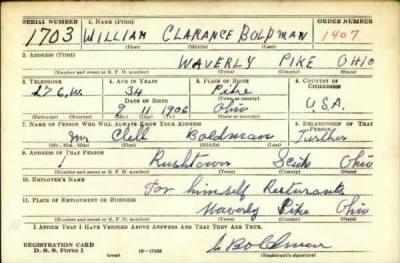 SERIAL NUMBER 1. NAME (Print) ORDER NUMBER
1703 WILLIAM CLARANCE BOLDMAN 1407
(First) (Middle) (Last)
2. ADDRESS (Print)
WAVERLY PIKE OHIO
(Number and street or R. F. D. number) (Town) (County) (State)
3. TELEPHONE 4. AGE IN YEARS 5. PLACE OF BIRTH 6. COUNTRY OF CITIZENSHIP
276.W. 34 Pike
DATE OF BIRTH (Town or county)
9 11 1906 Ohio U.S.A.
(Exchange) (Number) (Mo.) (Day) (Yr.) (State or country)
7. NAME OF PERSON WHO WILL ALWAYS KNOW YOUR ADDRESS 8. RELATIONSHIP OF THAT PERSON
Mr Clell Boldman
(Mr., Mrs., Miss) (First) (Middle) (Last)
9. ADDRESS OF THAT PERSON
1 Rushtown Ohio
(Number and street or R. F. D. number) (Town) (County) (State)
10. EMPLOYER'S NAME
For himself
11. PLACE OF EMPLOYMENT OR BUSINESS
Waverly Pike Ohio
(Number and street or R. F. D. number) (Town) (County) (State)
I AFFIRM THAT I HAVE VERIFIED ABOVE ANSWERS AND THAT THEY ARE TRUE.
REGISTRATION CARD
D. S. S. Form 1 (over) (Registrant's signature)